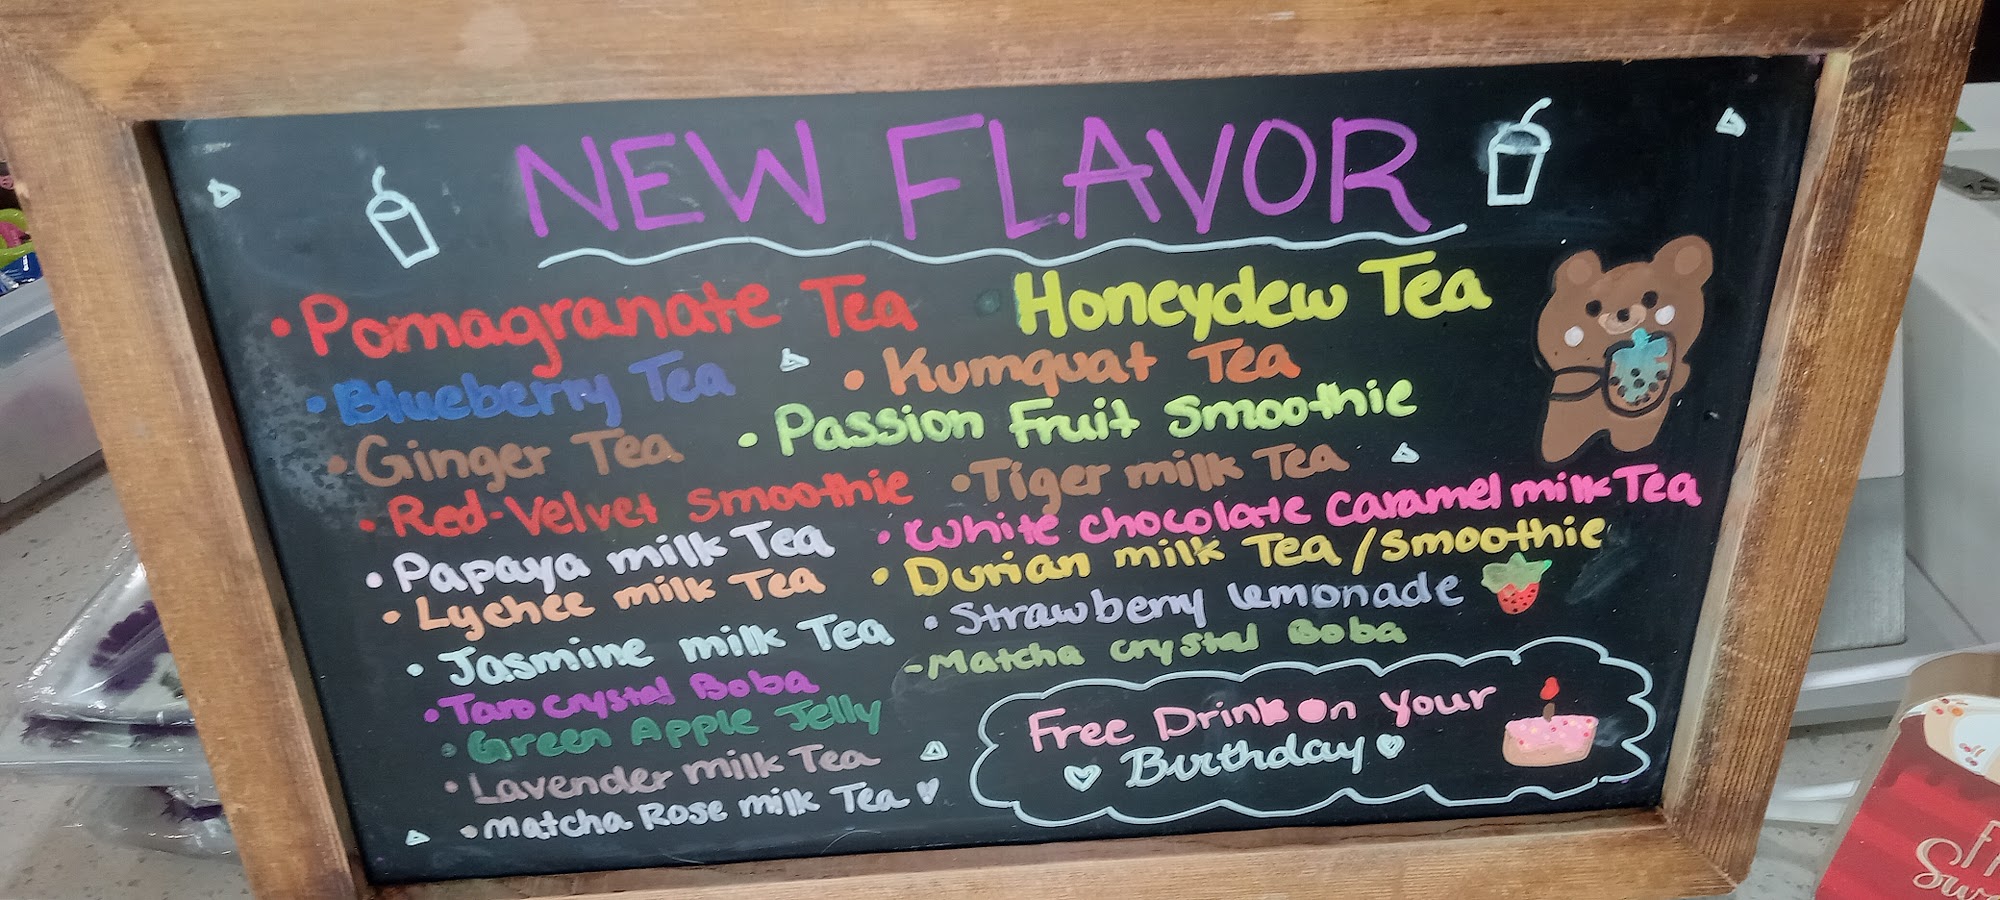 NEW FLAVOR
• Pomagranate Tea
Honeydew Tea
• Blueberry Tea
• Kumquat Tea
• Ginger Tea
• Passion Fruit Smoothie
• Red-Velvet Smoothie
• Tiger milk Tea
• Papaya milk Tea
• White chocolate caramel milk Tea
• Lychee milk Tea
• Durian milk Tea / Smoothie
• Jasmine milk Tea
• Strawberry lemonade
• Taro crystal Boba
- Matcha crystal Boba
• Green Apple Jelly
• Lavender milk Tea
• Matcha Rose milk Tea
Free Drink on Your
Birthday